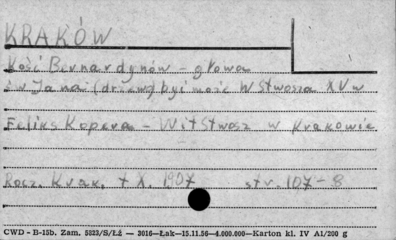 KRAKÓW
Kość Bernardynów - głowa
św Jana (drzew) być może W Stwosza XV w
Feliks Kopera - Wit Stwosz w Krakowie
Rocz. Krak. t X. 1907 str. 107-8
CWD - B-15b. Zam. 5823/S/Łź — 3016—Łak—15.11.56—4.000.000—Karton kl. IV A1/200 g